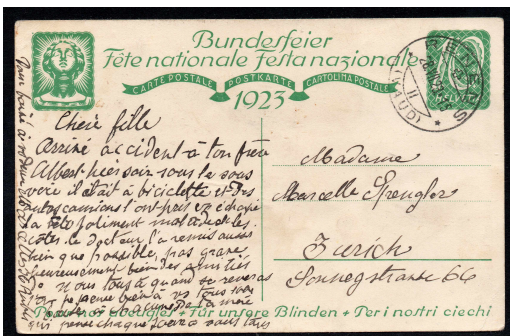 Bundesfeier
Fête nationale Festa nazionale
CARTE POSTALE POSTKARTE CARTOLINA POSTALE
1923
RENENS
(VAUD)
HELVETIA
Chère fille
Arrivé accident à ton frère
Albert hier soir sous le
il était à biciclette et des
autos camions l'ont pris
la tête joliment mal
côtes le docteur l'a remis aussi
bien que possible, pas grave
heureusement bien des amitiés
à vous tous à quand se reverra
on pense bien à vous tous
de la mère
qui pense chaque jour à vous tous
Madame
Marcelle Spengler
Zurich
Sonneggstrasse 66
Pour nos aveugles + Für unsere Blinden + Per i nostri ciechi